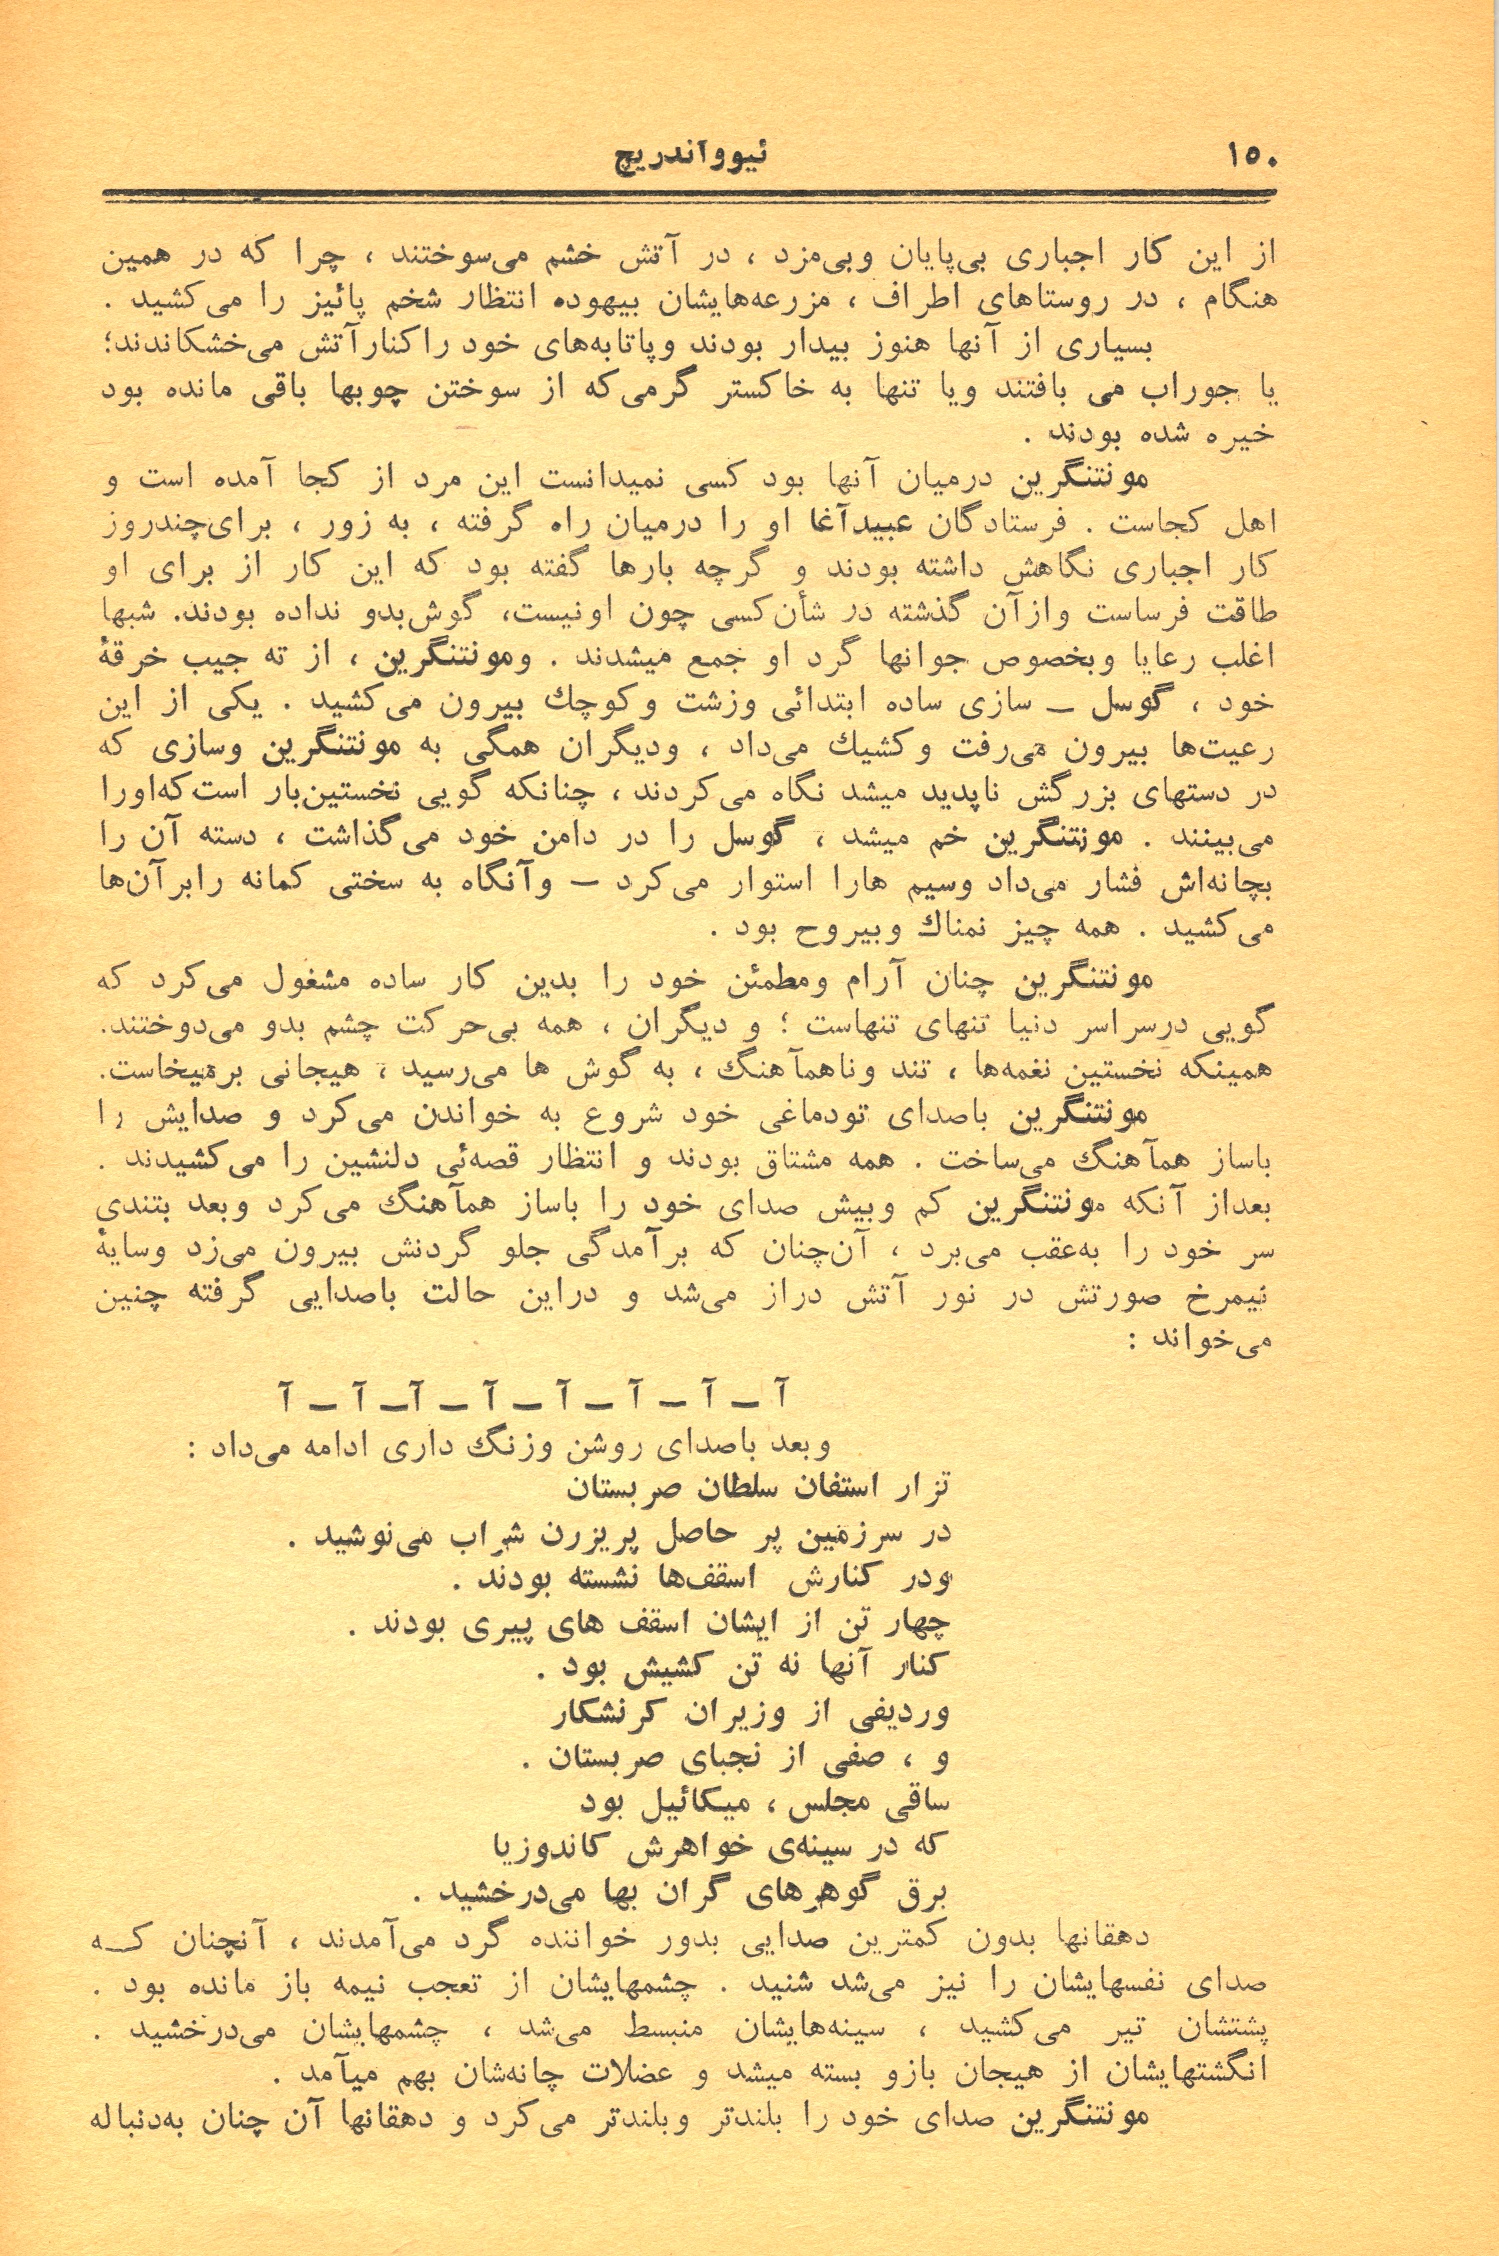 ۱۵۰
ئیووآندریچ
از این کار اجباری بی‌پایان وبی‌مزد ، در آتش خشم می‌سوختند ، چرا که در همین
هنگام ، در روستاهای اطراف ، مزرعه‌هایشان بیهوده انتظار شخم پائیز را می‌کشید .
بسیاری از آنها هنوز بیدار بودند وپاتابه‌های خود را کنار آتش می‌خشکاندند؛
یا جوراب می بافتند ویا تنها به خاکستر گرمی‌که از سوختن چوبها باقی مانده بود
خیره شده بودند .
مونتنگرین درمیان آنها بود کسی نمیدانست این مرد از کجا آمده است و
اهل کجاست . فرستادگان عبیدآغا او را درمیان راه گرفته ، به زور ، برای‌چندروز
کار اجباری نگاهش داشته بودند و گرچه بارها گفته بود که این کار از برای او
طاقت فرساست وازآن گذشته در شأن‌کسی چون اونیست، گوش‌بدو نداده بودند. شبها
اغلب رعایا وبخصوص جوانها گرد او جمع میشدند . ومونتنگرین ، از ته جیب خرقهٔ
خود ، گوسل ــ سازی ساده ابتدائی وزشت وکوچك بیرون می‌کشید . یکی از این
رعیت‌ها بیرون می‌رفت وکشیك می‌داد ، ودیگران همگی به مونتنگرین وسازی که
در دستهای بزرگش ناپدید میشد نگاه می‌کردند ، چنانکه گویی نخستین‌بار است‌که‌اورا
می‌بینند . مونتنگرین خم میشد ، گوسل را در دامن خود می‌گذاشت ، دسته آن را
بچانه‌اش فشار می‌داد وسیم هارا استوار می‌کرد – وآنگاه به سختی کمانه رابرآن‌ها
می‌کشید . همه چیز نمناك وبیروح بود .
مونتنگرین چنان آرام ومطمئن خود را بدین کار ساده مشغول می‌کرد که
گویی درسراسر دنیا تنهای تنهاست ؛ و دیگران ، همه بی‌حرکت چشم بدو می‌دوختند.
همینکه نخستین نغمه‌ها ، تند وناهمآهنگ ، به گوش ها می‌رسید ، هیجانی برمیخاست.
مونتنگرین باصدای تودماغی خود شروع به خواندن می‌کرد و صدایش را
باساز همآهنگ می‌ساخت . همه مشتاق بودند و انتظار قصه‌ئی دلنشین را می‌کشیدند .
بعداز آنکه مونتنگرین کم وبیش صدای خود را باساز همآهنگ می‌کرد وبعد بتندی
سر خود را به‌عقب می‌برد ، آن‌چنان که برآمدگی جلو گردنش بیرون می‌زد وسایهٔ
نیمرخ صورتش در نور آتش دراز می‌شد و دراین حالت باصدایی گرفته چنین
می‌خواند :
آ ــ آ ــ آ ــ آ ــ آ ــ آــ آ ــ آ
وبعد باصدای روشن وزنگ داری ادامه می‌داد :
تزار استفان سلطان صربستان
در سرزمین پر حاصل پریزرن شراب می‌نوشید .
ودر کنارش اسقف‌ها نشسته بودند .
چهار تن از ایشان اسقف های پیری بودند .
کنار آنها نه تن کشیش بود .
وردیفی از وزیران کرنشکار
و ، صفی از نجبای صربستان .
ساقی مجلس ، میکائیل بود
که در سینه‌ی خواهرش کاندوزیا
برق گوهرهای گران بها می‌درخشید .
دهقانها بدون کمترین صدایی بدور خواننده گرد می‌آمدند ، آنچنان کــه
صدای نفسهایشان را نیز می‌شد شنید . چشمهایشان از تعجب نیمه باز مانده بود .
پشتشان تیر می‌کشید ، سینه‌هایشان منبسط می‌شد ، چشمهایشان می‌درخشید .
انگشتهایشان از هیجان بازو بسته میشد و عضلات چانه‌شان بهم میآمد .
مونتنگرین صدای خود را بلندتر وبلندتر می‌کرد و دهقانها آن چنان به‌دنباله